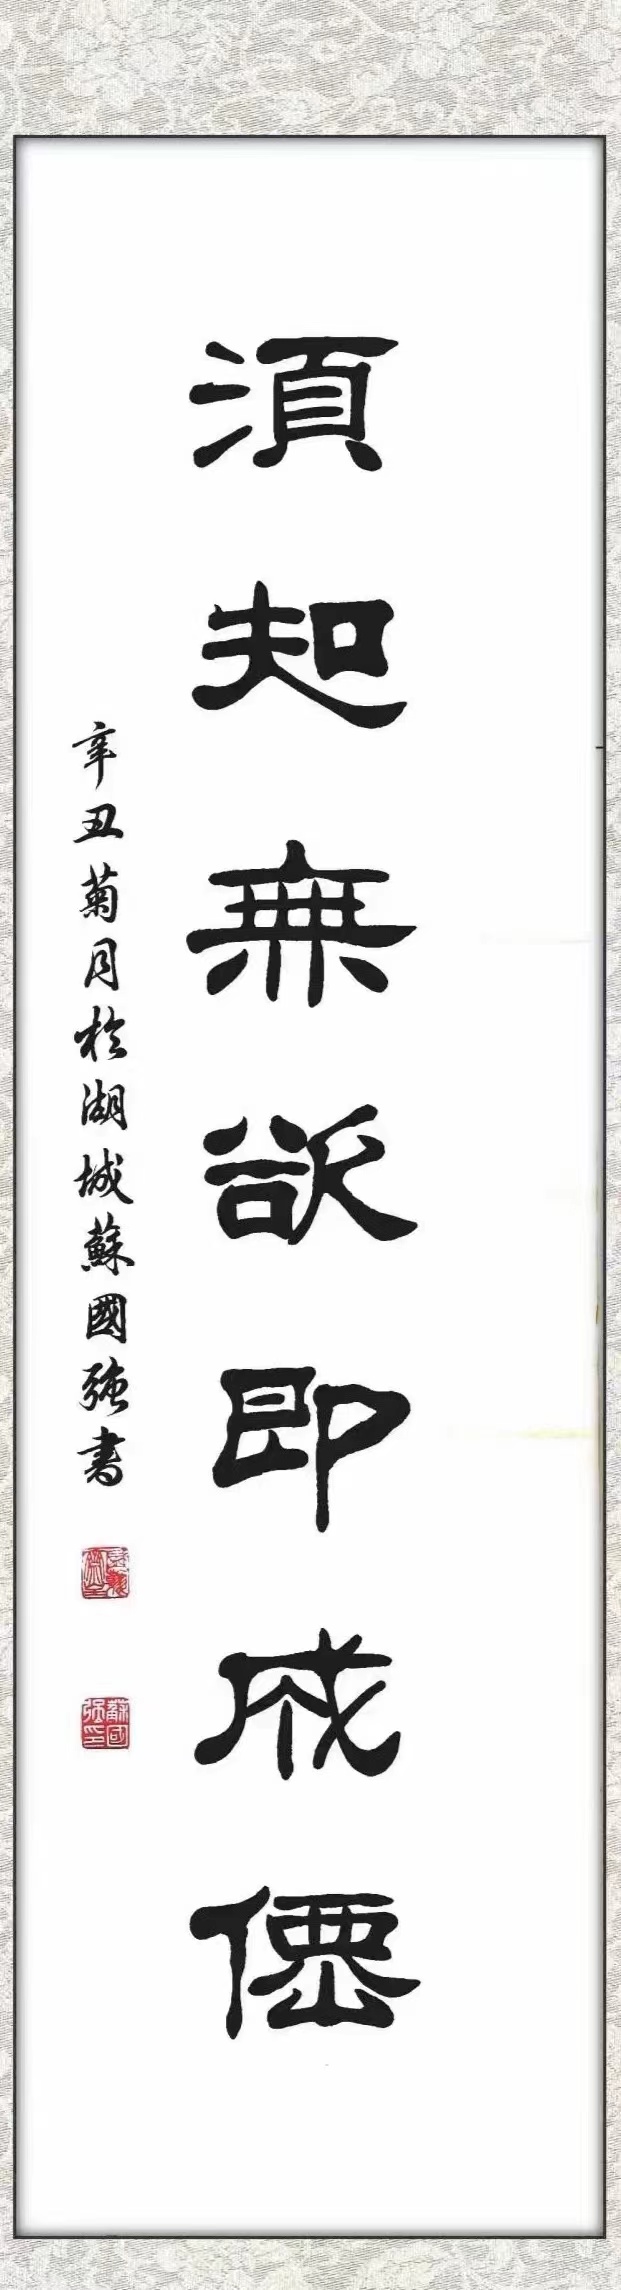 須知無欲即成僊
辛丑菊月於湖城蘇國強書
蘇國強印